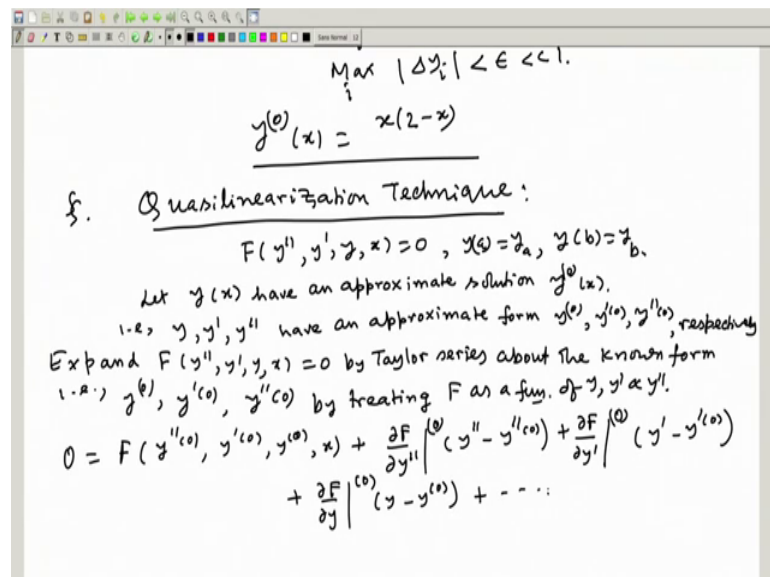 Sans Normal 12
Max |Δy_i| < ε << 1.
i
y^(0)(x) = x(2-x)
§. Quasilinearization Technique:
F(y'', y', y, x) = 0, y(a) = y_a, y(b) = y_b.
Let y(x) have an approximate solution y^(0)(x).
i.e., y, y', y'' have an approximate form y^(0), y'^(0), y''^(0), respectively
Expand F(y'', y', y, x) = 0 by Taylor series about the known form
i.e., y^(0), y'^(0), y''^(0) by treating F as a fun. of y, y' & y''.
0 = F(y''^(0), y'^(0), y^(0), x) + ∂F/∂y''|^(0) (y'' - y''^(0)) + ∂F/∂y'|^(0) (y' - y'^(0))
+ ∂F/∂y|^(0) (y - y^(0)) + - - - ..